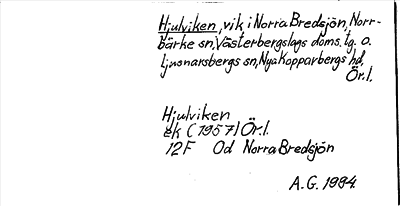 Hjulviken, vik i Norra Bredsjön, Norr-
bärke sn, Västerbergslags doms. tg. o.
Ljusnarsbergs sn, Nya Kopparbergs hd,
Ör.l.
Hjulviken
ek (1957) Ör.l.
12F Od Norra Bredsjön
A.G. 1984.